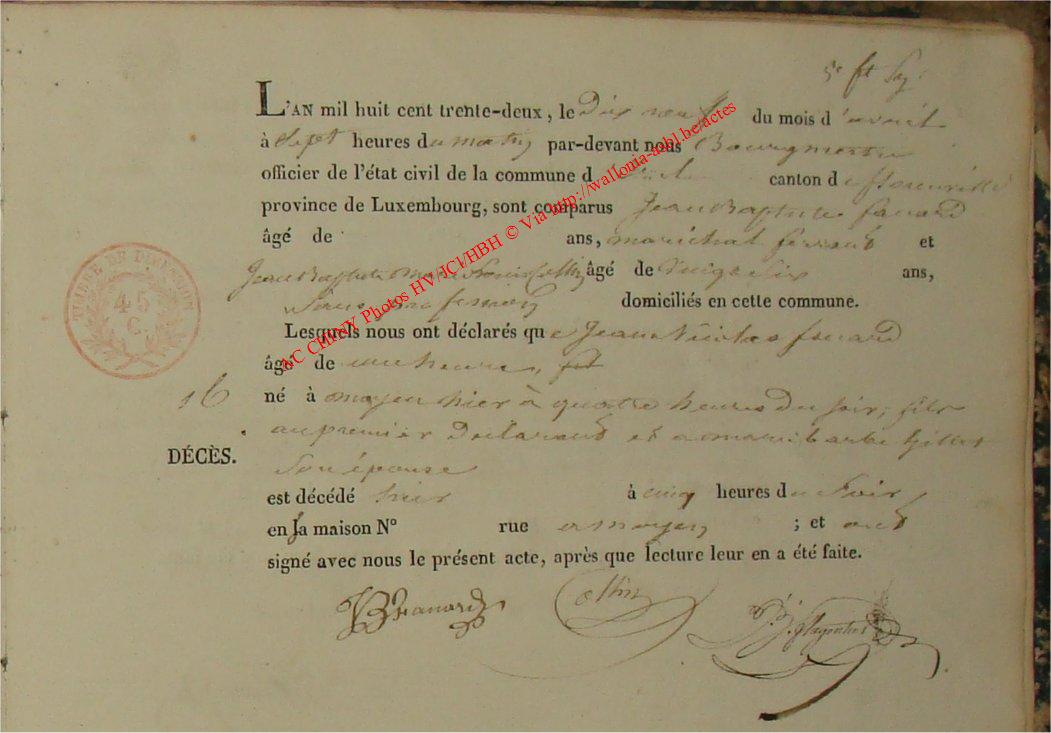 5e ft Pag
L'AN mil huit cent trente-deux, le Dix neuf du mois d'avril
à Sept heures du matin par-devant nous Bourgmestre
officier de l'état civil de la commune d canton de florenville
province de Luxembourg, sont comparus Jean Baptiste fanard
âgé de ans, maréchal ferrant et
Jean Baptiste Collin âgé de vingt six ans,
Sans profession domiciliés en cette commune.
Lesquels nous ont déclarés que Jean Nicolas fanard
âgé de une heure,
16 né à moyen hier à quatre heures du soir, fils
au premier Déclarant et a marie barbe
DÉCÈS.
Son épouse
est décédé hier à cinq heures du Soir
en la maison N° rue a moyen ; et ont
signé avec nous le présent acte, après que lecture leur en a été faite.
JB fanard Collin
TIMBRE DE DIMENSION
45
C.
AC CHINY Photos HV/JCl/HBH © Via http://wallonia-asbl.be/actes